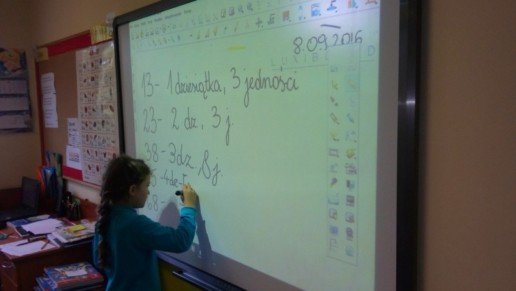 8.09.2016
13 - 1 dziesiątka, 3 jedności
23 - 2 dz, 3 j
38 - 3 dz 8 j
5 - 4 dz 5